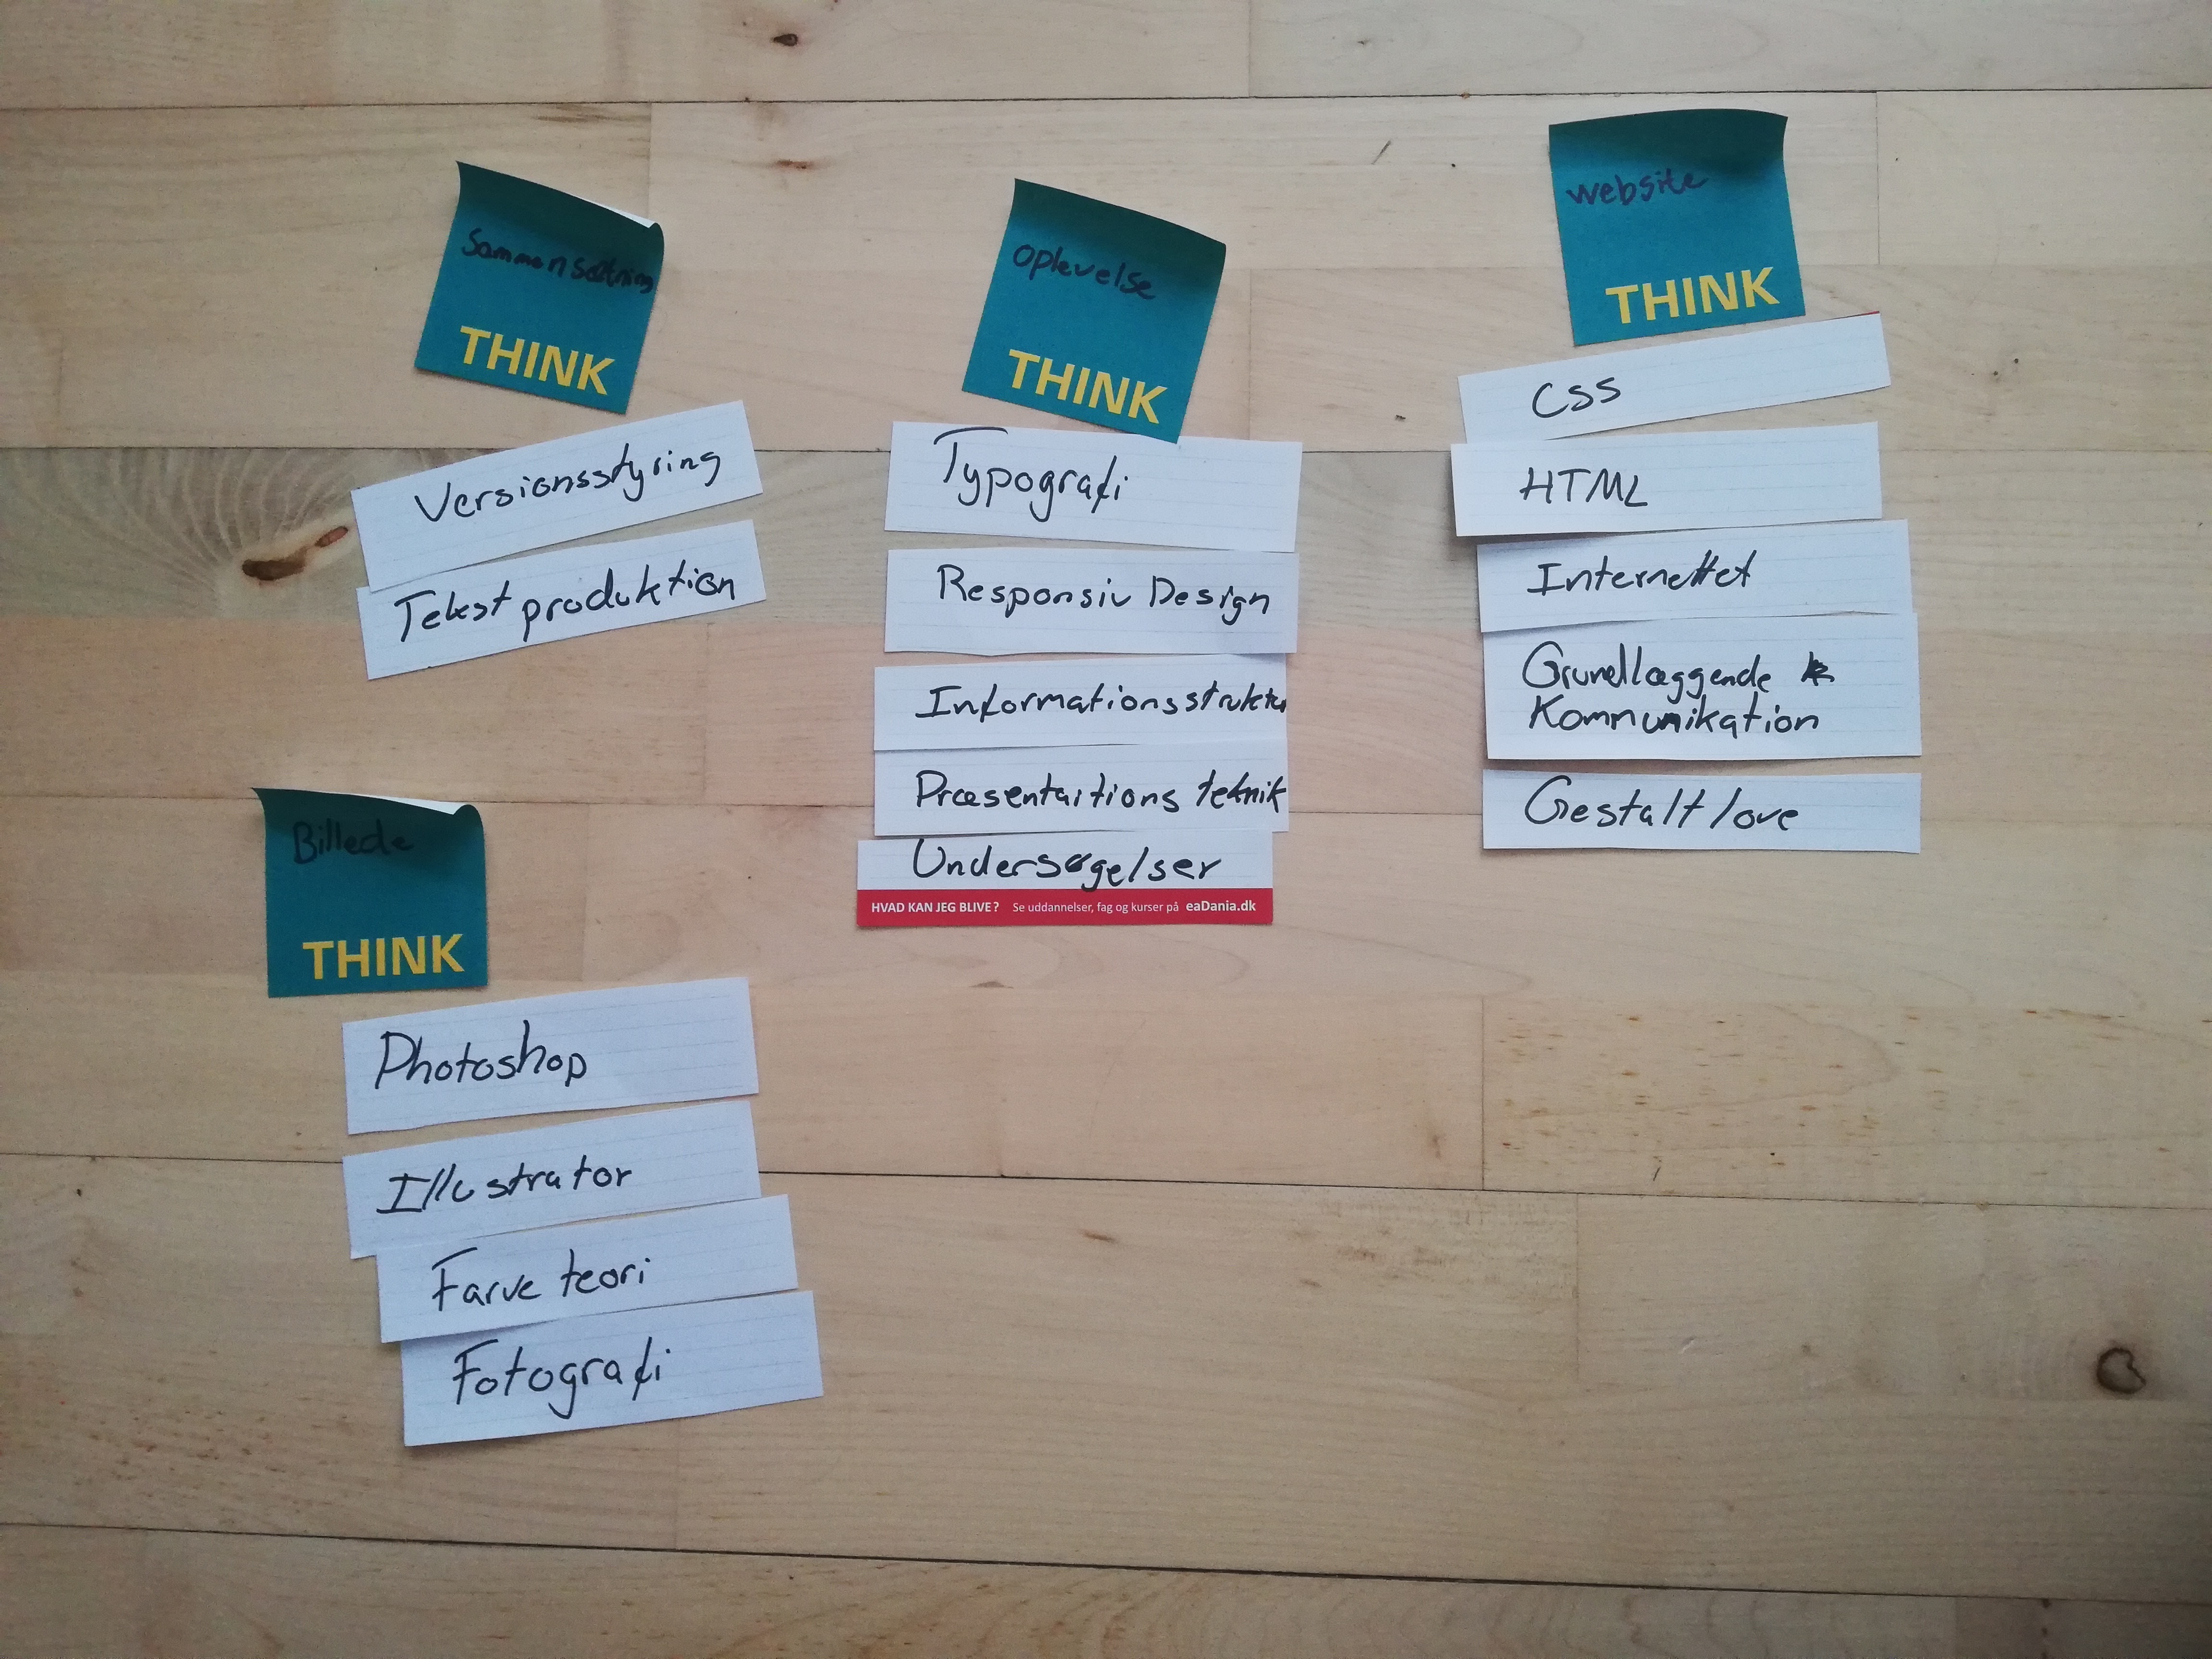 Sammensætning
THINK
Versionsstyring
Tekst produktion
Oplevelse
THINK
Typografi
Responsiv Design
Informationsstruktur
Præsentaitions teknik
Undersøgelser
HVAD KAN JEG BLIVE? Se uddannelser, fag og kurser på eaDania.dk
website
THINK
CSS
HTML
Internettet
Grundlæggende
Kommunikation
Gestalt love
Billede
THINK
Photoshop
Illustrator
Farve teori
Fotografi